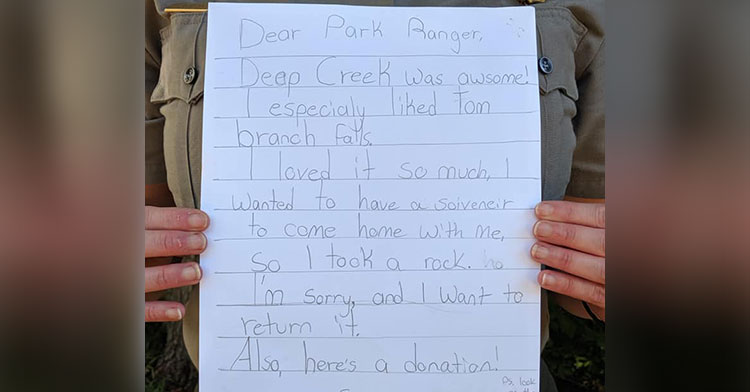 Dear Park Ranger,
Deep Creek was awsome!
I especialy liked Tom
branch falls.
I loved it so much, I
wanted to have a soiveneir
to come home with me,
so I took a rock.
I'm sorry, and I want to
return it.
Also, here's a donation!
Ps. look